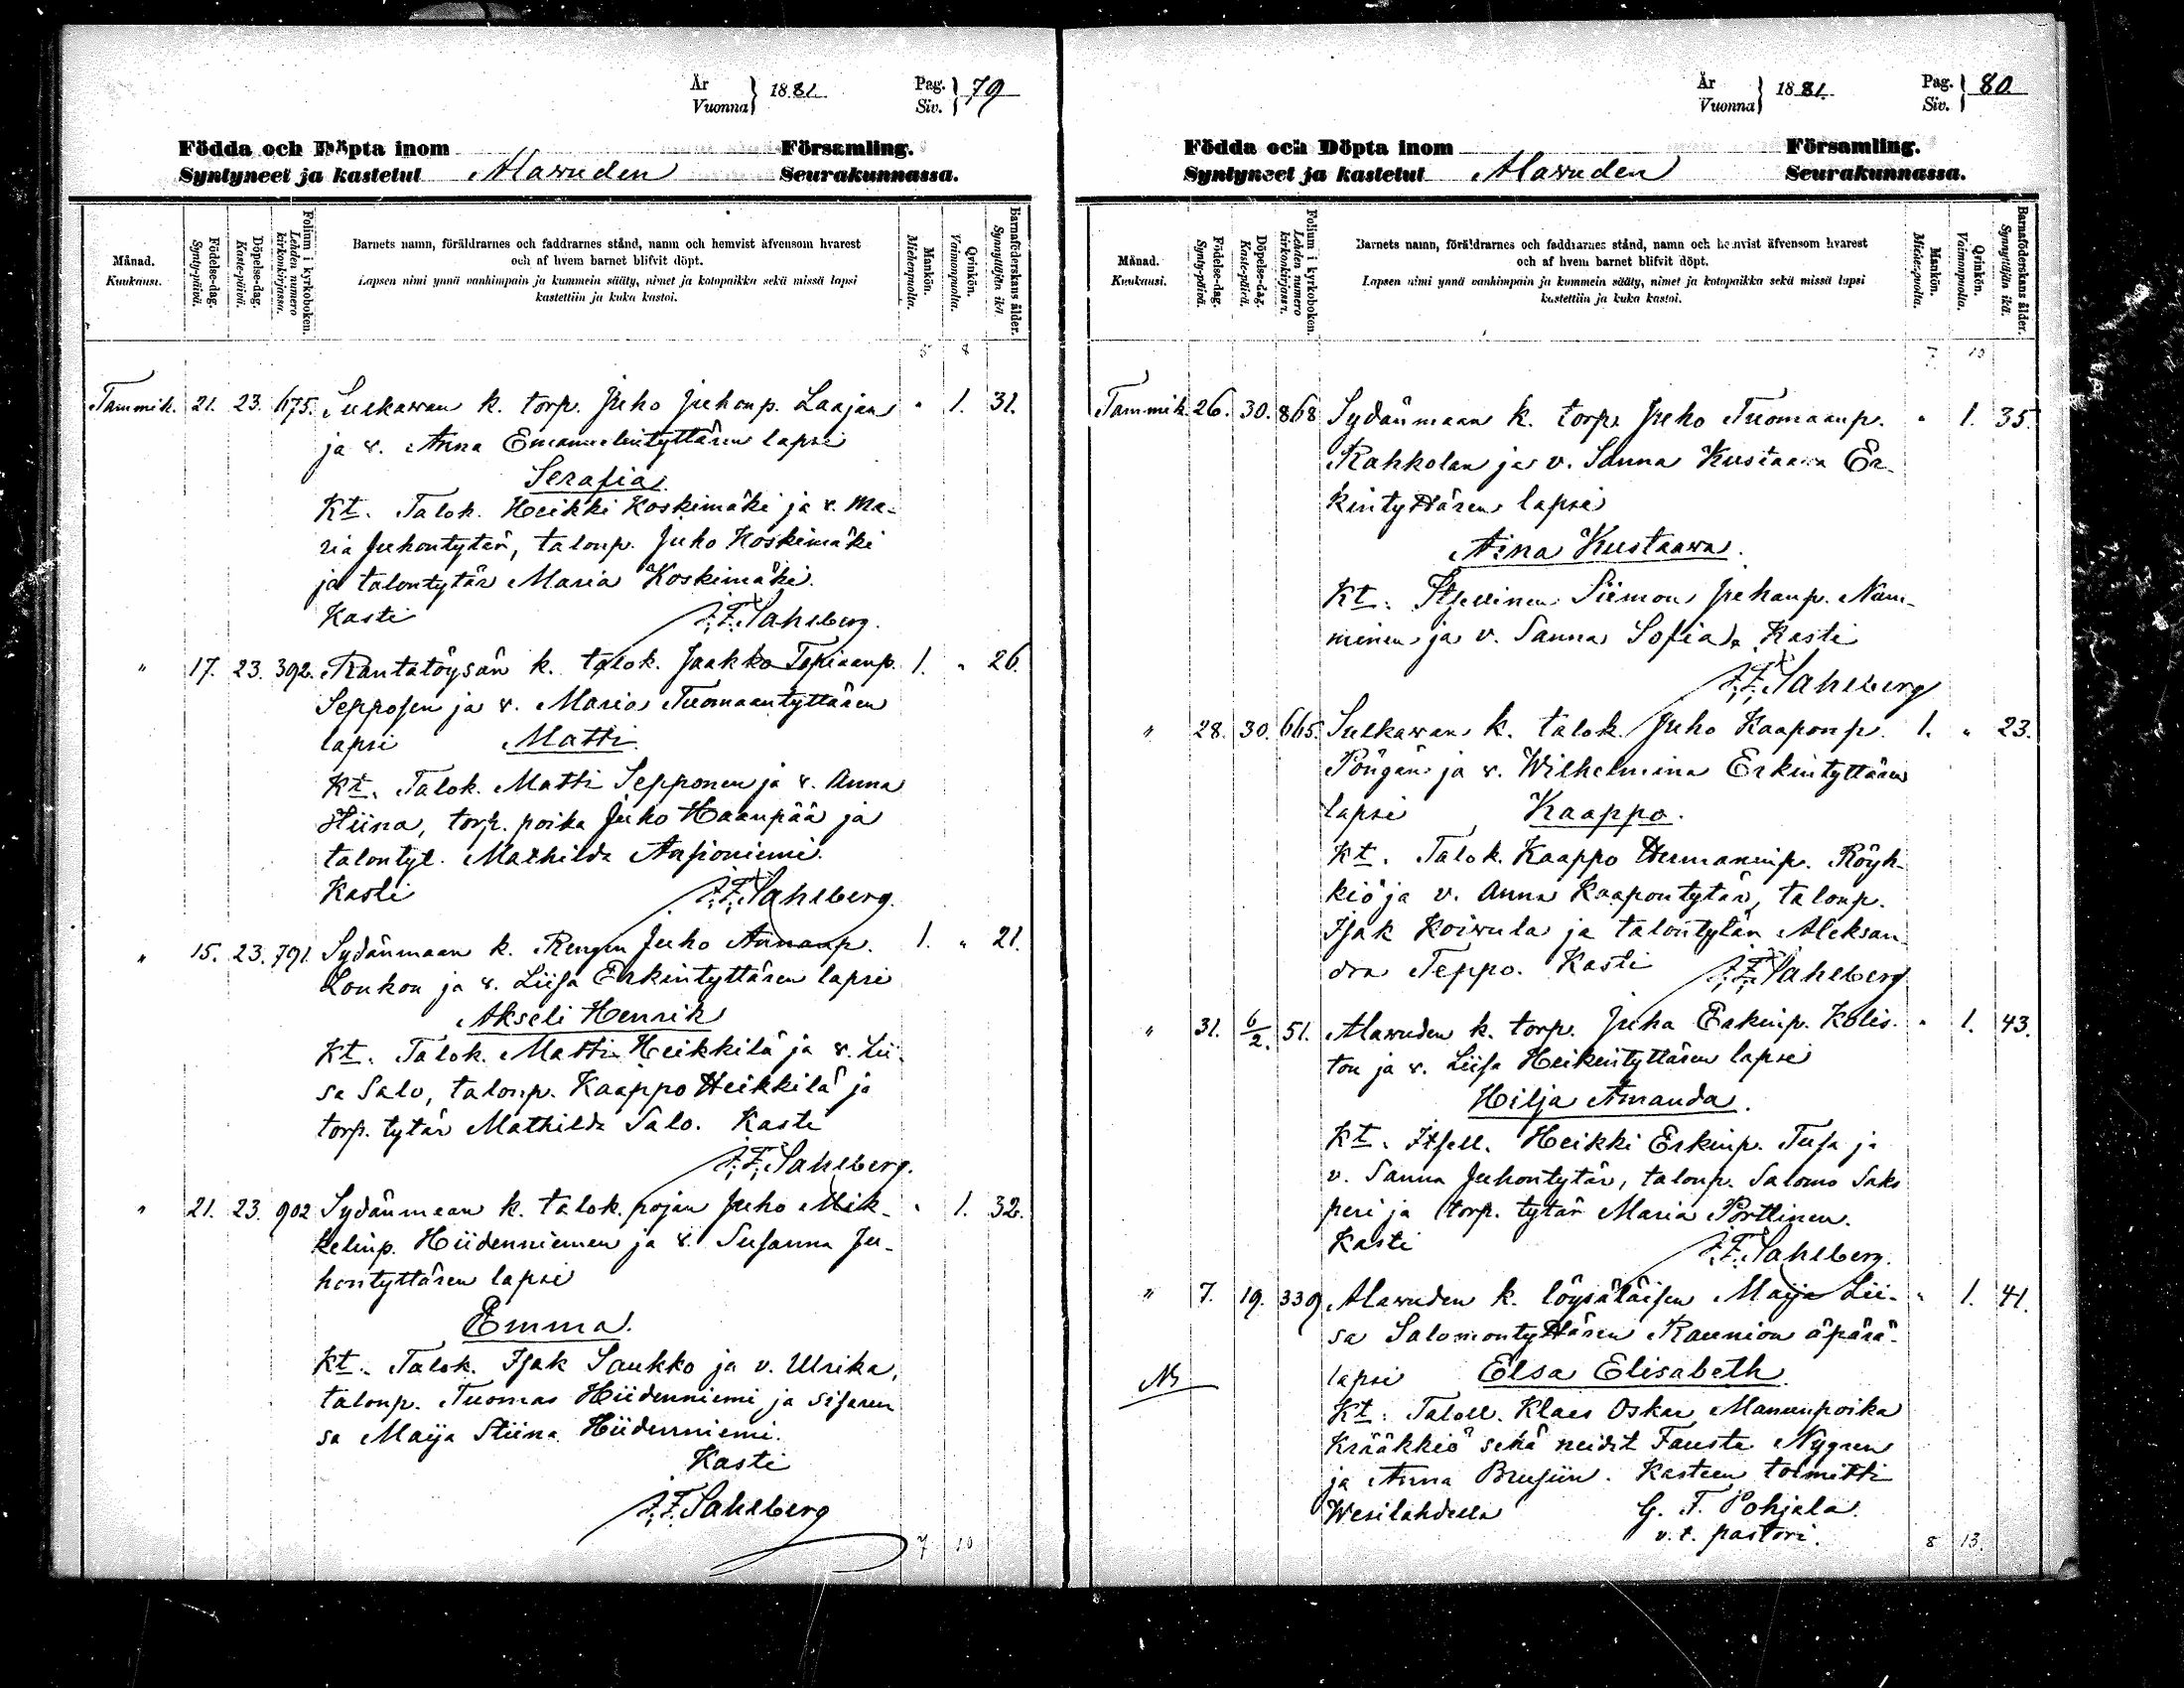 År
Vuonna } 1881.
Pag.
Siv. } 79
Födda och Döpta inom Församling.
Syntyneet ja kastetut Alavuden Seurakunnassa.
Månad.
Kuukausi.
Födelse-dag.
Synty-päivä.
Döpelse-dag.
Kaste-päivä.
Folium i kyrkoboken.
Lehden numero kirkonkirjassa.
Barnets namn, föräldrarnes och faddrarnes stånd, namn och hemvist äfvensom hvarest
och af hvem barnet blifvit döpt.
Lapsen nimi ynnä vanhimpain ja kummein sääty, nimet ja kotopaikka sekä missä lapsi
kastettiin ja kuka kastoi.
Mankön.
Miehenpuolta.
Qvinkön.
Vaimonpuolta.
Barnaföderskans ålder.
Synnyttäjän ikä.
5 8
Tammik. 21. 23. 675. Sulkawan k. torp. Juho Juhonp. Laajan " 1. 31.
ja v. Anna Emanuelintyttären lapsi
Serafia
Kt. Talok. Heikki Koskimäki ja v. Ma-
ria Juhontytär, talonp. Juho Koskimäki
ja talontytär Maria Koskimäki.
Kasti J. F. Sahlberg.
" 17. 23. 392. Rantatöysän k. talok. Jaakko Topiaanp. 1. " 26.
Sepposen ja v. Maria Tuomaantyttären
lapsi Matti
Kt. Talok. Matti Sepponen ja v. Anna
Stiina, torp. poika Juho Haanpää ja
talontyt. Mathilda Asioniemi.
Kasti J. F. Sahlberg.
" 15. 23. 791. Sydänmaan k. Rengin Juho Annanp. 1. " 21.
Loukon ja v. Liisa Erkintyttären lapsi
Akseli Henrik
Kt. Talok. Matti Heikkilä ja v. Lii-
sa Salo, talonp. Kaappo Heikkilä ja
torp. tytär Mathilda Salo. Kasti
J. F. Sahlberg.
" 21. 23. 902 Sydänmaan k. talok. pojan Juho Mik- " 1. 32.
kelinp. Hiidenniemen ja v. Susanna Ju-
hontyttären lapsi
Emma.
Kt. Talok. Isak Saukko ja v. Ulrika,
talonp. Tuomas Hiidenniemi ja sisaren
sa Maija Stiina Hiidenniemi.
Kasti
J. F. Sahlberg
7 10
År
Vuonna } 1881.
Pag.
Siv. } 80
Födda och Döpta inom Församling.
Syntyneet ja kastetut Alavuden Seurakunnassa.
Månad.
Kuukausi.
Födelse-dag.
Synty-päivä.
Döpelse-dag.
Kaste-päivä.
Folium i kyrkoboken.
Lehden numero kirkonkirjassa.
Barnets namn, föräldrarnes och faddrarnes stånd, namn och hemvist äfvensom hvarest
och af hvem barnet blifvit döpt.
Lapsen nimi ynnä vanhimpain ja kummein sääty, nimet ja kotopaikka sekä missä lapsi
kastettiin ja kuka kastoi.
Mankön.
Miehenpuolta.
Qvinkön.
Vaimonpuolta.
Barnaföderskans ålder.
Synnyttäjän ikä.
7 10
Tammik 26. 30. 868 Sydänmaan k. torp. Juho Tuomaanp. " 1. 35.
Rahkolan ja v. Sanna Kustaava Er-
kintyttären lapsi
Aina Kustaawa.
Kt. Itsellinen Siimon Juhanp. Näm-
minen ja v. Sanna Sofia. Kasti
J. F. Sahlberg
" 28. 30. 665. Sulkawan k. talok. Juho Kaaponp. 1. " 23.
Pöngän ja v. Wilhelmina Erkintyttären
lapsi Kaappo.
Kt. Talok. Kaappo Hermanninp. Röyh-
kiö ja v. Anna Kaapontytär, talonp.
Isak Koiwula ja talontytär Aleksan-
dra Teppo. Kasti J. F. Sahlberg
" 31. 6/2. 51. Alawuden k. torp. Juha Erkinp. Kolis- " 1. 43.
ton ja v. Liisa Heikintyttären lapsi
Hilja Amanda.
Kt. Itsell. Heikki Erkinp. Tusa ja
v. Sanna Juhontytär, talonp. Salomo Saks
peri ja torp. tytär Maria Porttinen.
Kasti J. F. Sahlberg.
" 7. 19. 339 Alawuden k. löysäläisen Maija Lii- " 1. 41.
sa Salomontyttären Raunion äpärä-
lapsi Elsa Elisabeth
Kt. Taloll. Klaes Oskar Mananpoika
Krääkkiö sekä neidit Fausta Nygren
ja Anna Brusiin. Kasteen toimitti
Wesilahdella G. F. Pohjala.
v. t. pastori.
8 13.